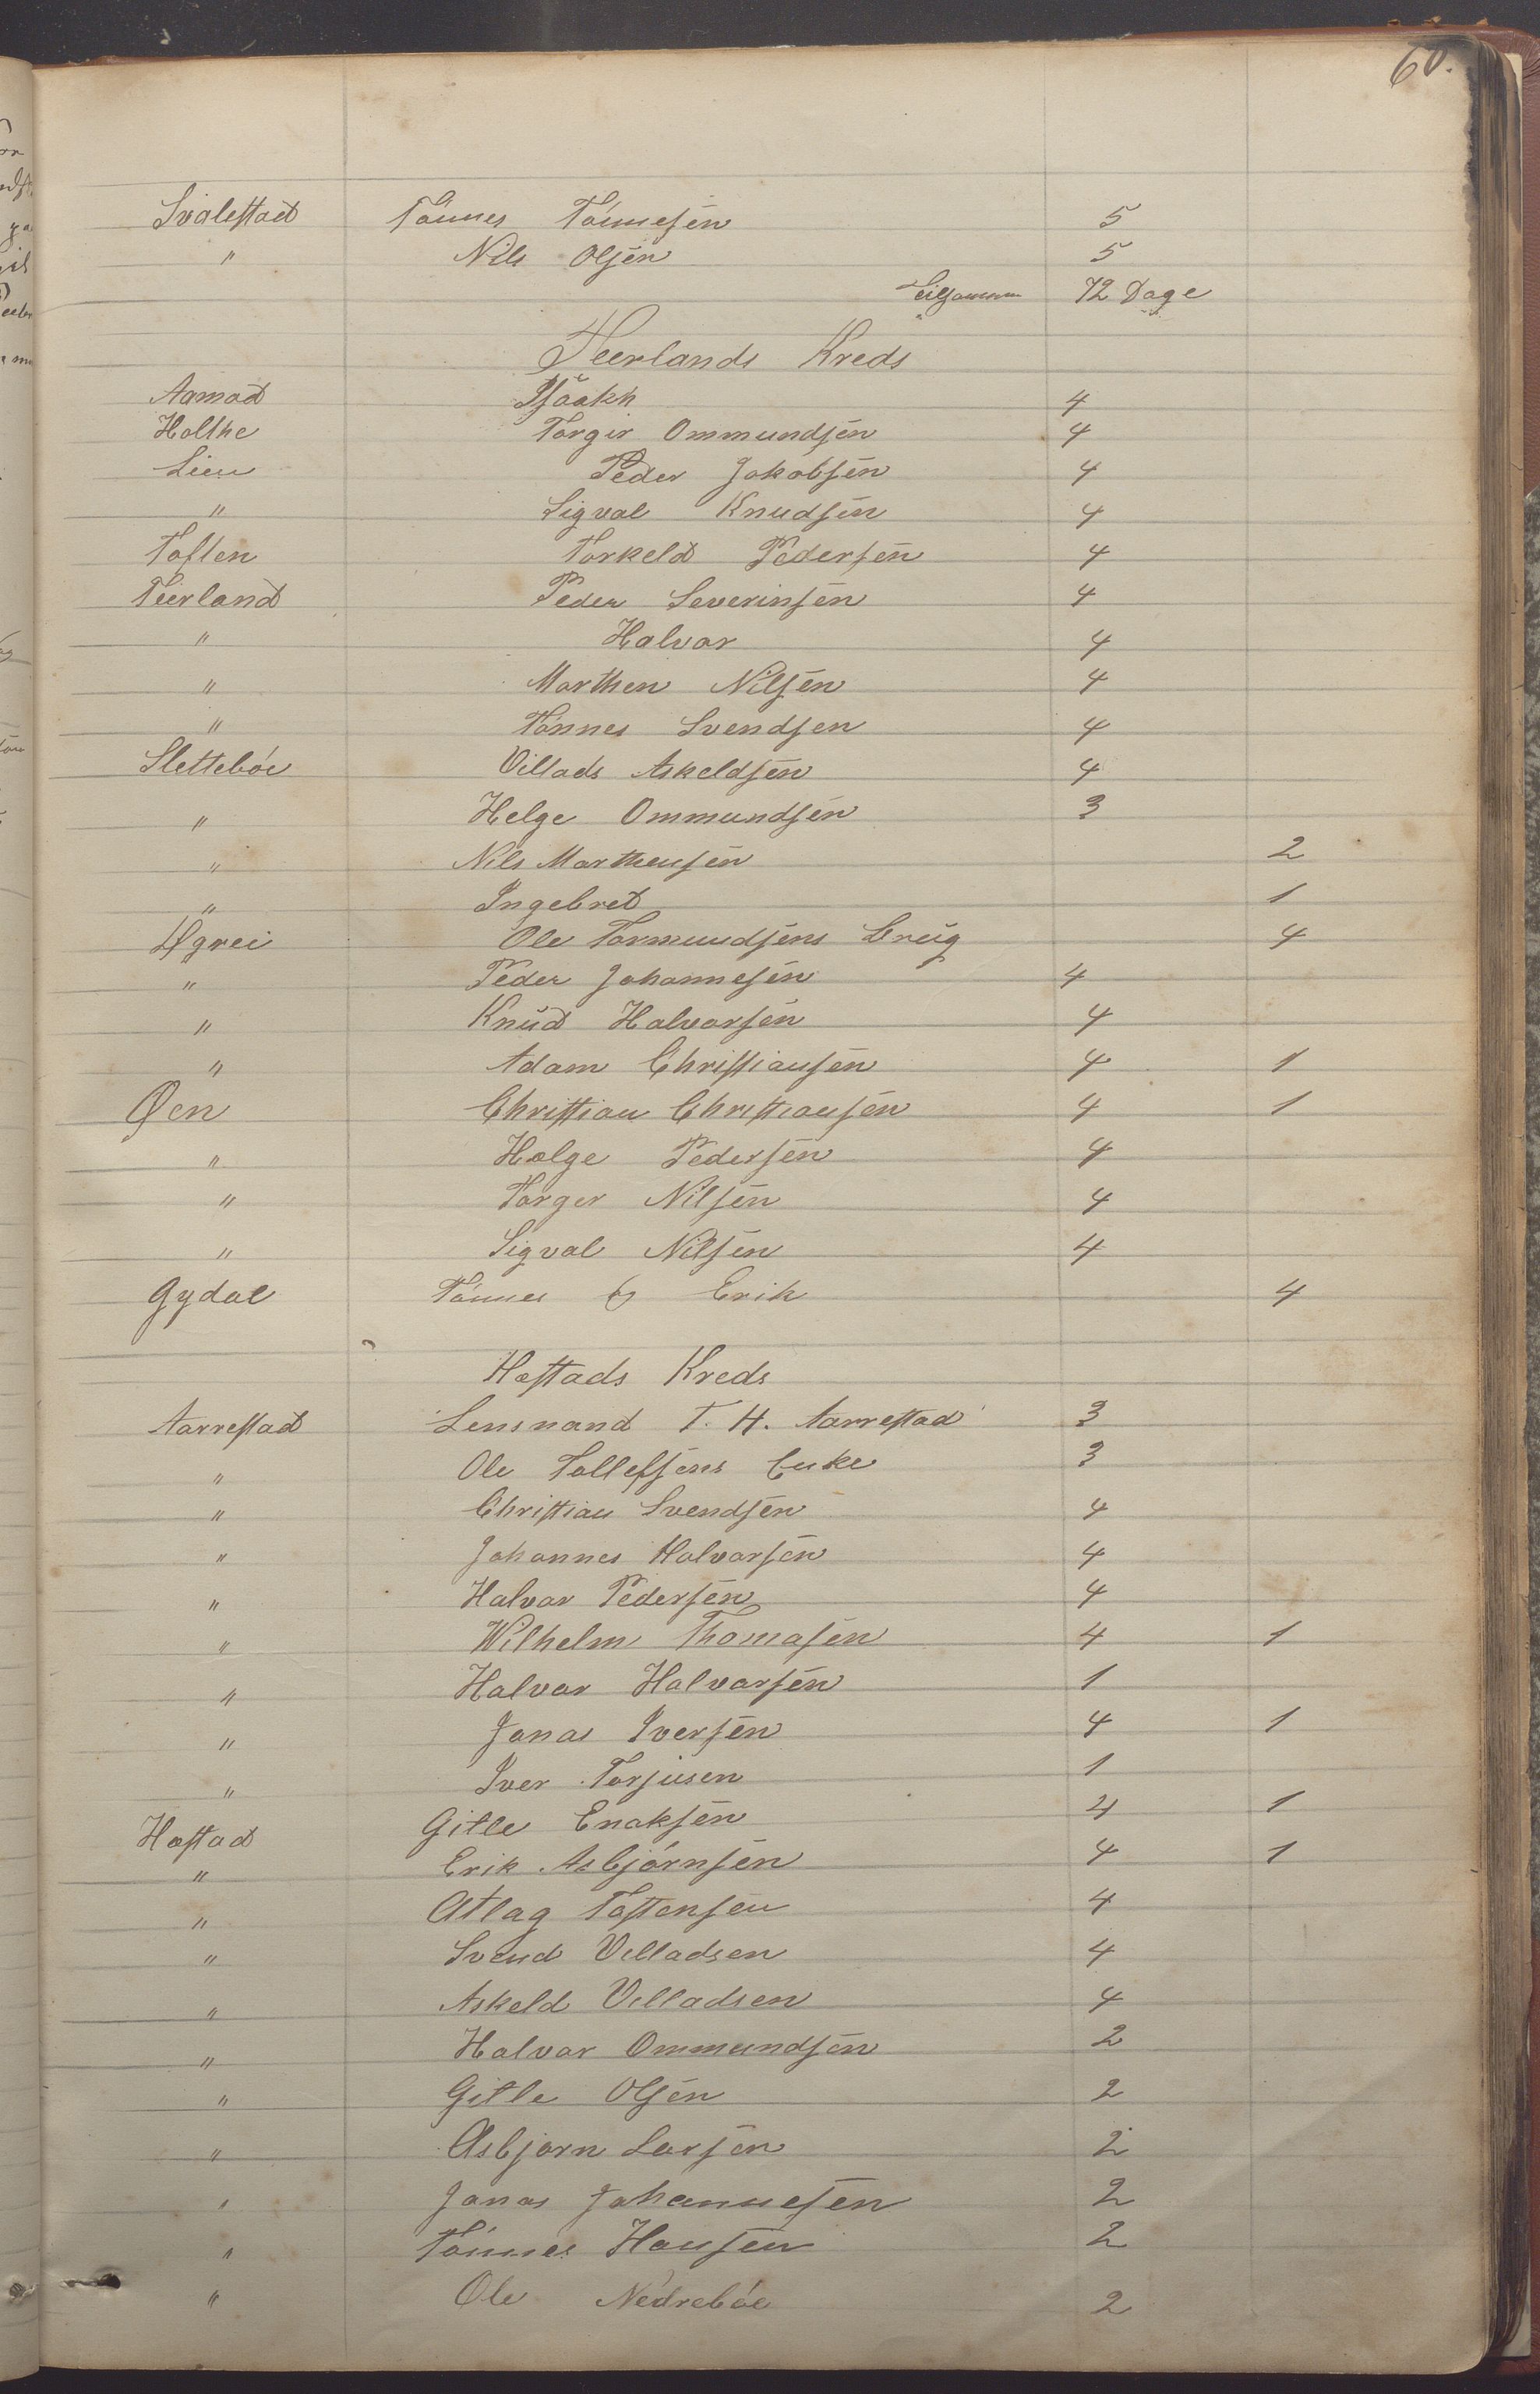 60.
Svalestad Tönnes Tönnesen 5
" Nils Olsen 5
Tilsammen 72 Dage
Teerlands Kreds
Aamod Isaakh 4
Holthe Torgir Ommundsen 4
Lien Peder Jakobsen 4
" Sigval Knudsen 4
Toften Torkeld Pedersen 4
Teerland Peder Severinsen 4
" Halvor 4
" Morthen Nilsen 4
" Tönnes Svendsen 4
Slettebóe Villads Askeldsen 4
" Helge Ommundsen 3
" Nils Morthensen 2
" Ingebret 1
Øgrei Ole Tormundsens Brúg 4
" Peder Johannesen 4
" Knúd Halvorsen 4
" Adam Christiansen 4 1
Øen Christian Christiansen 4 1
" Holge Pedersen 4
" Torger Nilsen 4
" Sigval Nilsen 4
Gydal Tönnes og Erik 4
Hæstads Kreds
Aarrestad Lensmand T. H. Aarrestad 3
" Ole Tollefsens Enke 3
" Christian Svendsen 4
" Johannes Halvorsen 4
" Halvor Pedersen 4
" Wilhelm Thomasen 4 1
" Halvor Halvorsen 1
" Jonas Iversen 4 1
" Iver Torjusen 1
Hæstad Gitle Enaksen 4 1
" Erik Asbjörnsen 4 1
" Atlag Tostensen 4
" Svend Villadsen 4
" Askeld Villadsen 4
" Halvor Ommundsen 2
" Gitle Olsen 2
" Asbjorn Larsen 2
" Jonas Johannesen 2
" Tönnes Hansen 2
" Ole Nedrebóe 2